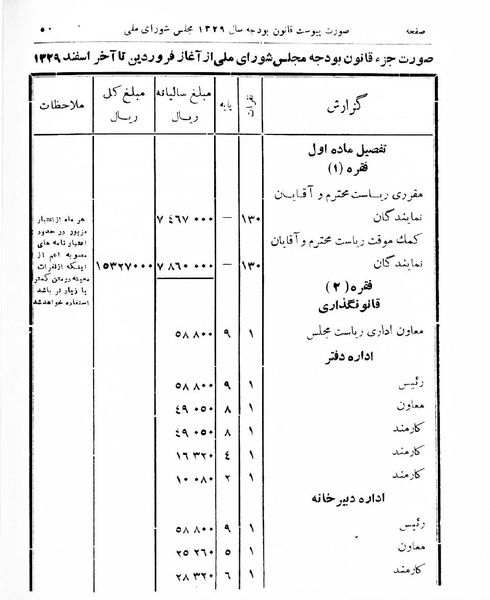 صفحه صورت پیوست قانون بودجه سال ۱۳۲۹ مجلس شورای ملی ۵۰
صورت جزء قانون بودجه مجلس شورای ملی از آغاز فروردین تا آخر اسفند ۱۳۲۹
گزارش نفرات پایه مبلغ سالیانه ریال مبلغ کل ریال ملاحظات
تفصیل ماده اول
فقره (۱)
مقرری ریاست محترم و آقایان
نمایندگان ۱۳۰ — ۷ ۴۶۷ ۰۰۰
کمک موقت ریاست محترم و آقایان
نمایندگان ۱۳۰ — ۷ ۸۶۰ ۰۰۰ ۱۵۳۲۷۰۰۰
هر ماه از اعتبار
مزبور در حدود
اعتبار نامه های
مصوبه اعم از
اینکه از نفرات
معینه رومتن کمتر
یا زیاد تر باشد
استفاده خواهد شد
فقره (۲)
قانونگذاری
معاون اداری ریاست مجلس ۱ ۹ ۵۸ ۸۰۰
اداره دفتر
رئیس ۱ ۹ ۵۸ ۸۰۰
معاون ۱ ۸ ۴۹ ۰۵۰
کارمند ۱ ۸ ۴۹ ۰۵۰
کارمند ۱ ۴ ۱۶ ۳۲۰
کارمند ۱ ۲ ۱۰ ۰۸۰
اداره دبیرخانه
رئیس ۱ ۹ ۵۸ ۸۰۰
معاون ۱ ۵ ۲۵ ۲۶۰
کارمند ۱ ۶ ۲۸ ۳۲۰